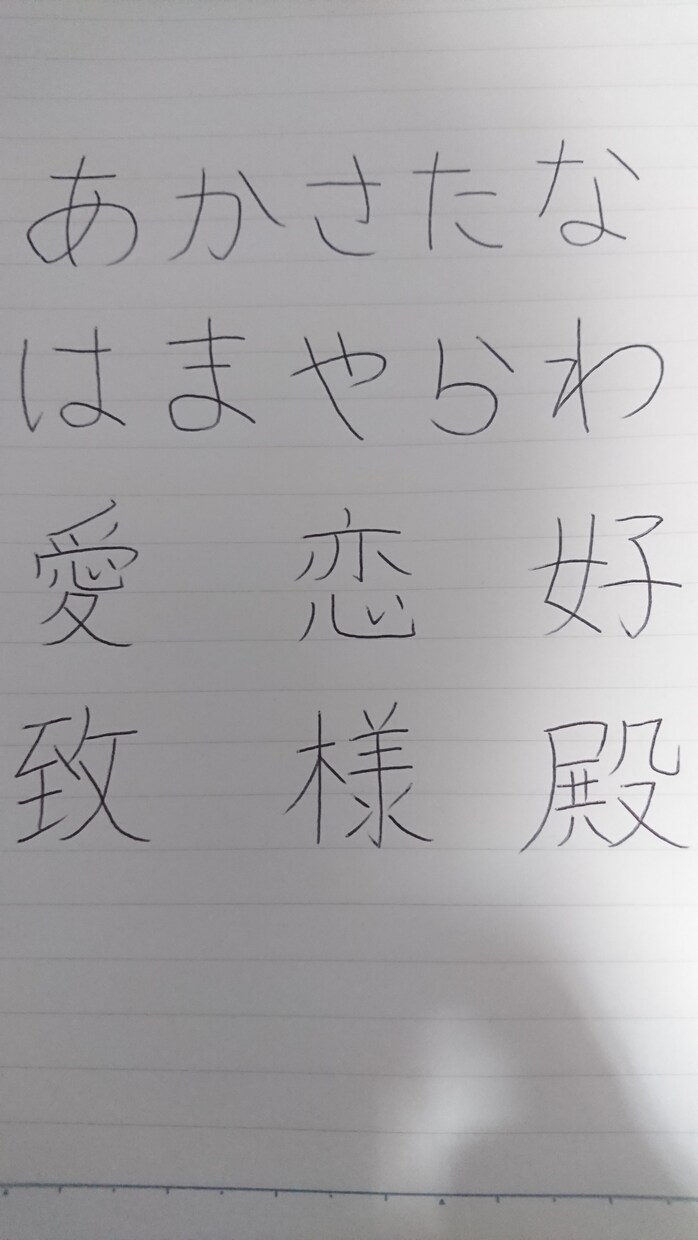 あかさたな
はまやらわ
愛 恋 好
致 様 殿